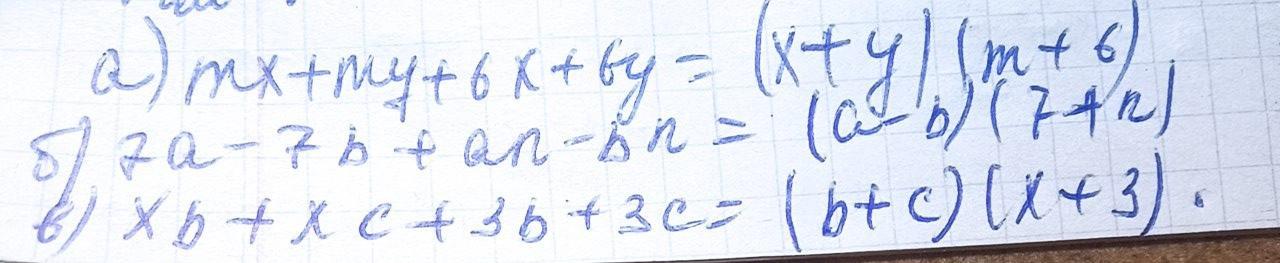 а) mx+my+6x+6y=(x+y)(m+6),
б) 7a-7b+an-bn=(a-b)(7+n)
в) xb+xc+3b+3c=(b+c)(x+3).